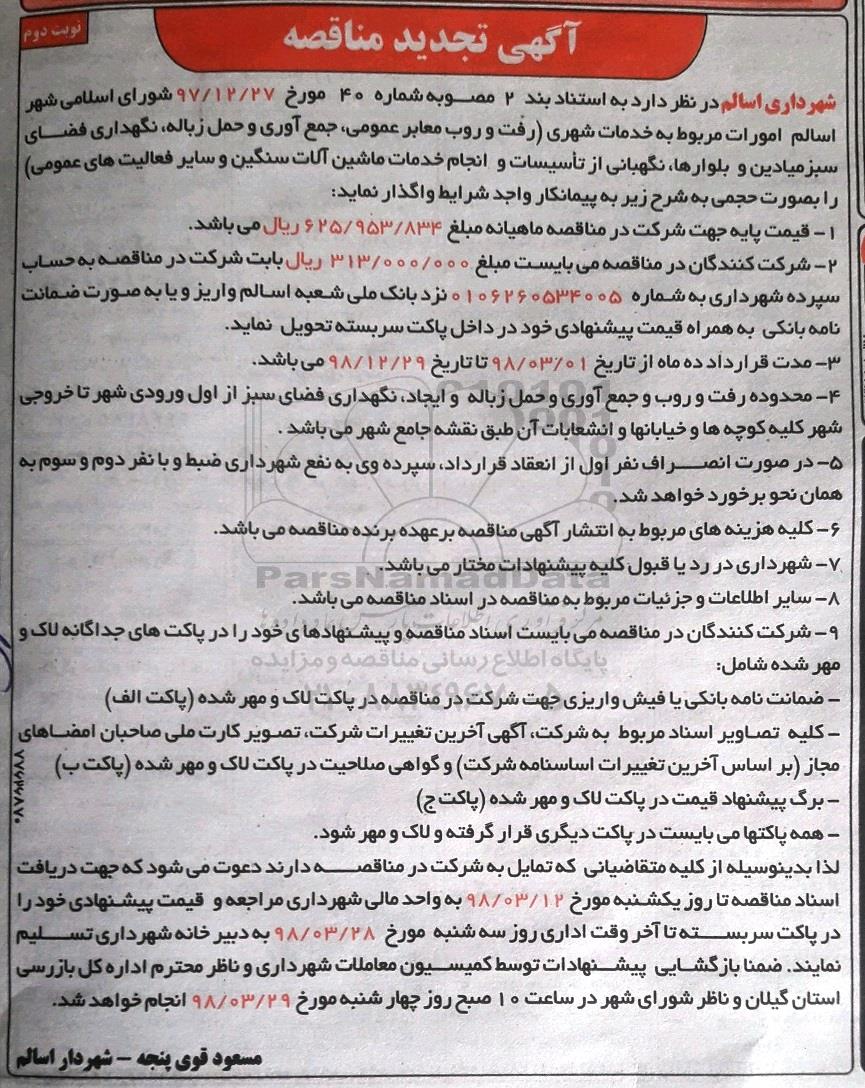 نوبت دوم
آگهی تجدید مناقصه
شهرداری اسالم در نظر دارد به استناد بند ۲ مصوبه شماره ۴۰ مورخ ۹۷/۱۲/۲۷ شورای اسلامی شهر
اسالم امورات مربوط به خدمات شهری (رفت و روب معابر عمومی، جمع آوری و حمل زباله، نگهداری فضای
سبز میادین و بلوارها، نگهبانی از تأسیسات و انجام خدمات ماشین آلات سنگین و سایر فعالیت های عمومی)
را بصورت حجمی به شرح زیر به پیمانکار واجد شرایط واگذار نماید:
۱- قیمت پایه جهت شرکت در مناقصه ماهیانه مبلغ ۶۲۵/۹۵۳/۸۳۴ ریال می باشد.
۲- شرکت کنندگان در مناقصه می بایست مبلغ ۳۱۳/۰۰۰/۰۰۰ ریال بابت شرکت در مناقصه به حساب
سپرده شهرداری به شماره ۰۱۰۶۲۶۰۵۳۴۰۰۵ نزد بانک ملی شعبه اسالم واریز و یا به صورت ضمانت
نامه بانکی به همراه قیمت پیشنهادی خود در داخل پاکت سربسته تحویل نماید.
۳- مدت قرارداد ده ماه از تاریخ ۹۸/۰۳/۰۱ تا تاریخ ۹۸/۱۲/۲۹ می باشد.
۴- محدوده رفت و روب و جمع آوری و حمل زباله و ایجاد، نگهداری فضای سبز از اول ورودی شهر تا خروجی
شهر کلیه کوچه ها و خیابانها و انشعابات آن طبق نقشه جامع شهر می باشد .
۵- در صورت انصراف نفر اول از انعقاد قرارداد، سپرده وی به نفع شهرداری ضبط و با نفر دوم و سوم به
همان نحو برخورد خواهد شد.
۶- کلیه هزینه های مربوط به انتشار آگهی مناقصه بر عهده برنده مناقصه می باشد.
۷- شهرداری در رد یا قبول کلیه پیشنهادات مختار می باشد.
ParsNamadData
۸- سایر اطلاعات و جزئیات مربوط به مناقصه در اسناد مناقصه می باشد.
۹- شرکت کنندگان در مناقصه می بایست اسناد مناقصه و پیشنهادها ی خود را در پاکت های جداگانه لاک و
پایگاه اطلاع رسانی مناقصه و مزایده
مهر شده شامل:
- ضمانت نامه بانکی یا فیش واریزی جهت شرکت در مناقصه در پاکت لاک و مهر شده (پاکت الف)
- کلیه تصاویر اسناد مربوط به شرکت، آگهی آخرین تغییرات شرکت، تصویر کارت ملی صاحبان امضاهای
مجاز (بر اساس آخرین تغییرات اساسنامه شرکت) و گواهی صلاحیت در پاکت لاک و مهر شده (پاکت ب)
- برگ پیشنهاد قیمت در پاکت لاک و مهر شده (پاکت ج)
- همه پاکتها می بایست در پاکت دیگری قرار گرفته و لاک و مهر شود.
لذا بدینوسیله از کلیه متقاضیانی که تمایل به شرکت در مناقصه دارند دعوت می شود که جهت دریافت
اسناد مناقصه تا روز یکشنبه مورخ ۹۸/۰۳/۱۲ به واحد مالی شهرداری مراجعه و قیمت پیشنهادی خود را
در پاکت سربسته تا آخر وقت اداری روز سه شنبه مورخ ۹۸/۰۳/۲۸ به دبیر خانه شهرداری تسلیم
نمایند. ضمنا بازگشایی پیشنهادات توسط کمیسیون معاملات شهرداری و ناظر محترم اداره کل بازرسی
استان گیلان و ناظر شورای شهر در ساعت ۱۰ صبح روز چهار شنبه مورخ ۹۸/۰۳/۲۹ انجام خواهد شد.
مسعود قوی پنجه - شهردار اسالم